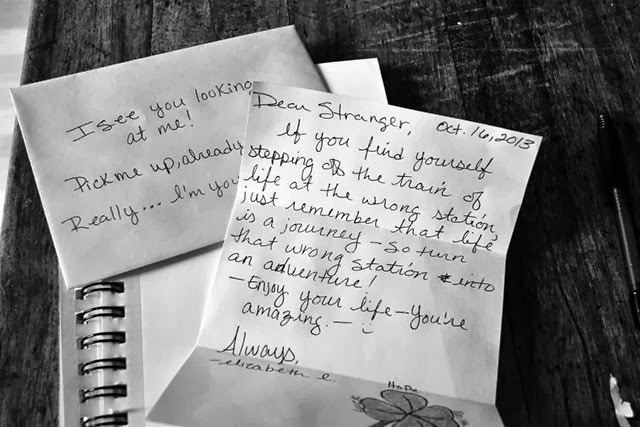 I see you looking
at me!
Pick me up, already
Really... I'm you
Dear Stranger,
Oct. 16, 2013
If you find yourself
stepping off the train of
life at the wrong station,
just remember that life
is a journey - So turn
that wrong station into
an adventure!
- Enjoy your life - You're
amazing. - :)
Always,
- elizabeth e.
Hope